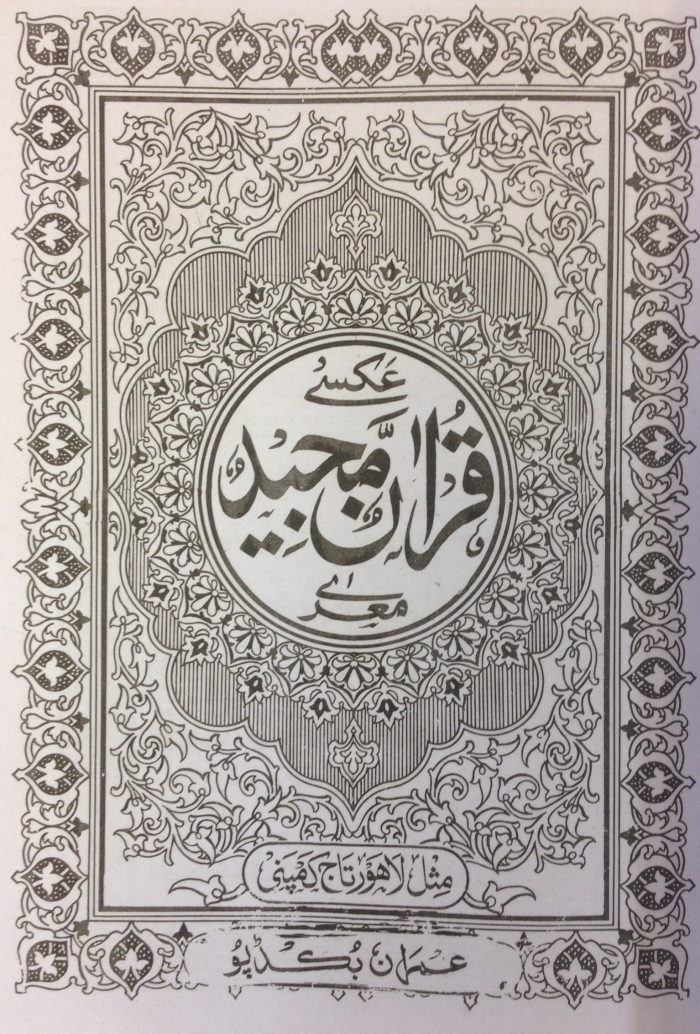 عکسی
قُرآن مَّجِید
معریٰ
مِثل لاھَور تاج کمپنی
عمران بُکڈپو